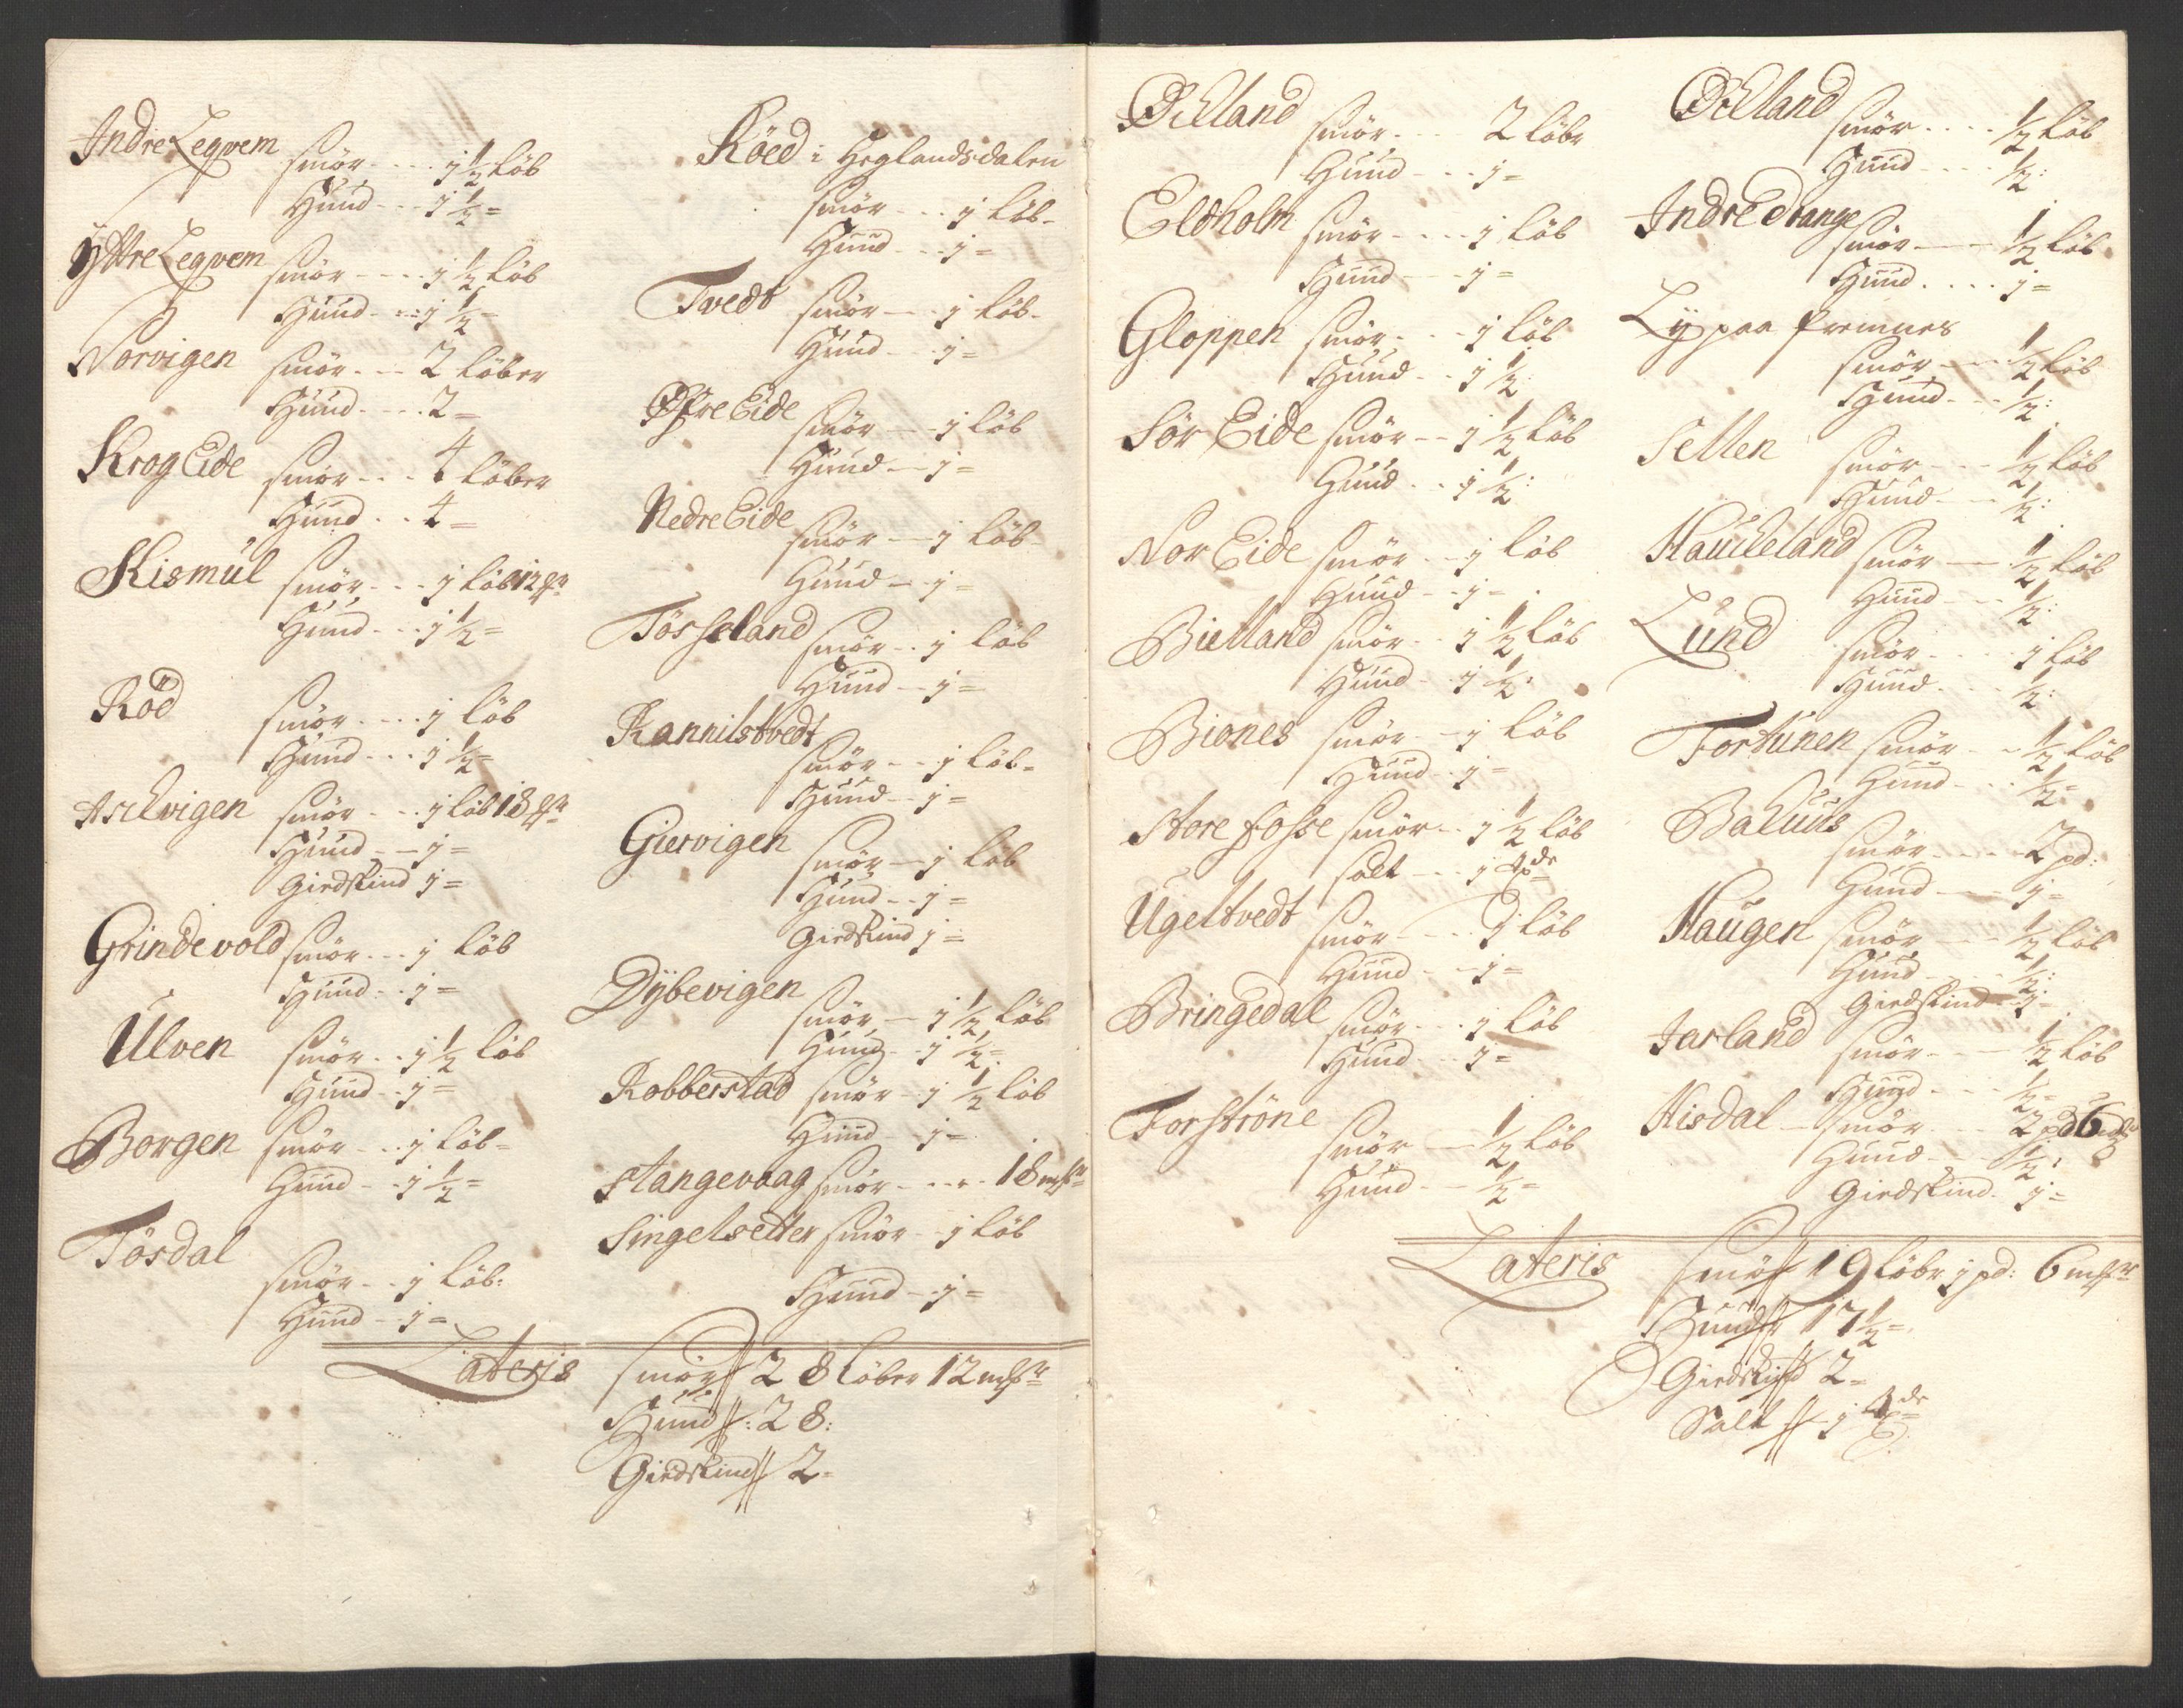 Indre Leqvem smör - - - j ½ löb
Huud - - j ½ =
Yttre Leqvem smör - - - j ½ löb
Huud - - j ½ =
Norvigen smör - - - 2 löber
Huud - - - 2 =
Krog Eide smör - - - 4 löber
Huud - - 4 =
Skismül smör - - - j löb 12 mr
Huud - - j ½ =
Röd smör - - - j löb
Huud - - - j ½ =
Aschvigen smör - - - j löb 18 mr
Huud - - j =
Giedskind j =
Grindevold smör - - - j löb
Huud - - j =
Ulven smör - - j ½ löb
Huud - - j =
Borgen smör - - - j löb =
Huud - - j ½ =
Tösdal
smör - - j löb:
Huud - j =
Röed i Heglandsdalen
smör - - - j löb -
Huud - - j =
Tvedt smör - - j löb -
Huud - - j =
Øfre Eide smör - - j löb
Huud - - j =
Nedre Eide
smör - - j löb
Huud - - j =
Tösseland smör - - j löb
Huud - - j =
Rannilstvedt
smör - - j löb -
Huud - - j =
Giervigen smör - - j löb
Huud - - j =
Giedskind j =
Dÿbevigen
smör - - j ½ löb
Huud - - j ½ =
Robberstad smör - j ½ löb
Huud - j =
Stangevaag smör - - - - 18 mr
Singelsetter smör - j löb
Huud - j =
Lateris smör 28 löber 12 mr
Huud : 28:
Giedskind 2 =
Øckland smör - - - 2 löbr
Huud - - - j =
Eldholm smör - - - j löb
Huud - - j =
Gloppen smör - - - j löb
Huud - - j ½:
Sör Eide smör - - j ½ löb
Huud - - j ½:
Nor Eide smör - - j löb
Huud - - j =
Bielland smör - - j ½ löb
Huud - - j ½:
Biones smör - - j löb
Huud - - j =
Store fosse smör - - j ½ löb
salt - - - j
Ugeltvedt smör - - - j löb
Huud - - j =
Bringedal smör - - - j löb
Huud - - j =
Forströne
smör - - ½ löb
Huud - - ½ =
Øckland smör - - - - ½ löb
Huud - - - - ½:
Indre Drange smör - - - ½ löb
Huud - - - - j =
Lÿ paa Premnes
smör - - - ½ löb
Huud - - - ½:
Sellen smör - - - ½ löb
Huud - - - ½:
Hauckeland smör - - ½ löb
Huud - - - ½:
Lund smör - - - j löb
Huud - - - ½:
Fortunen smör - - ½ löb
Huud - - - ½ =
smör - - - - 2 pd:
Huud - - - j =
Haugen smör - - - ½ löb
Huud - - - ½:
Giedskind - - j =
Jarland smör - - - ½ löb
Huud - - - ½ =
Hisdal - smör - - - 2 pd 6 mr
Huud - - - ½:
Giedskind - j =
Lateris smör 19 löbr j pd: 6 mr
Huud 17 ½ =
Giedskind 2 =
Salt j